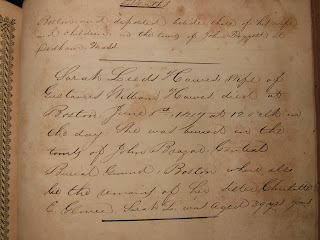 Deaths
Boston and deposited beside those of his wife
and children in the tomb of John
Dedham Mass
Sarah Leeds Hawes wife of
Gustavus William Hawes died at
Boston June 1817 at 12 o'clk in
the day She was buried in the
tomb of John Central
Burial Ground, Boston where also
lie the remains of her sister Charlotte
E. Sarah L. was aged years